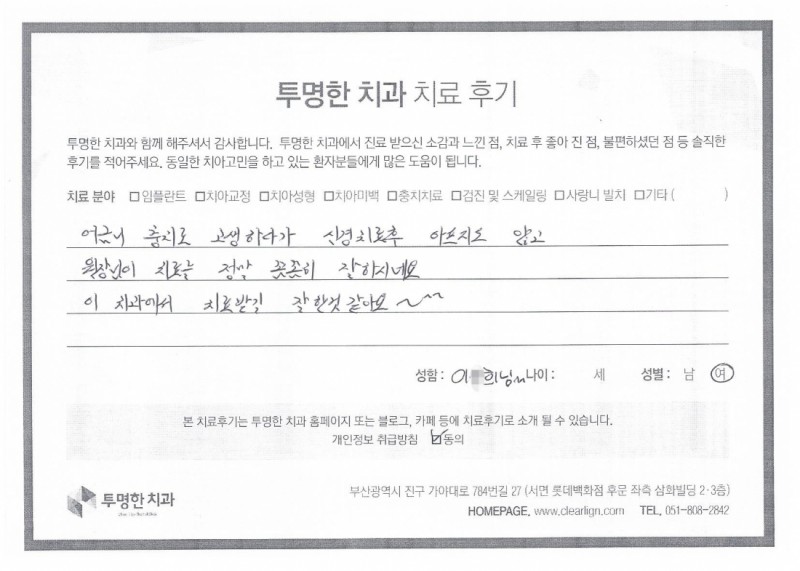 투명한 치과 치료 후기
투명한 치과와 함께 해주셔서 감사합니다. 투명한 치과에서 진료 받으신 소감과 느낀 점, 치료 후 좋아 진 점, 불편하셨던 점 등 솔직한
후기를 적어주세요. 동일한 치아고민을 하고 있는 환자분들에게 많은 도움이 됩니다.
치료 분야 □임플란트 □치아교정 □치아성형 □치아미백 □충치치료 □검진 및 스케일링 □사랑니 발치 □기타 ( )
어금니 충치로 고생하다가 신경치료후 아프지도 않고
원장님이 치료를 정말 꼼꼼히 잘하시네요
이 치과에서 치료받길 잘한것 같아요 ~^^
성함 : 이 희님 나이 : 세 성별 : 남 여
본 치료후기는 투명한 치과 홈페이지 또는 블로그, 카페 등에 치료후기로 소개 될 수 있습니다.
개인정보 취급방침 ☑동의
투명한 치과
부산광역시 진구 가야대로 784번길 27 (서면 롯데백화점 후문 좌측 삼화빌딩 2·3층)
HOMEPAGE. www.clearlign.com TEL. 051-808-2842